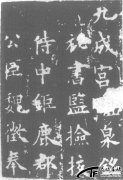 九成宮醴泉銘
祕書監檢校
侍中鉅鹿郡
公臣魏徵奉